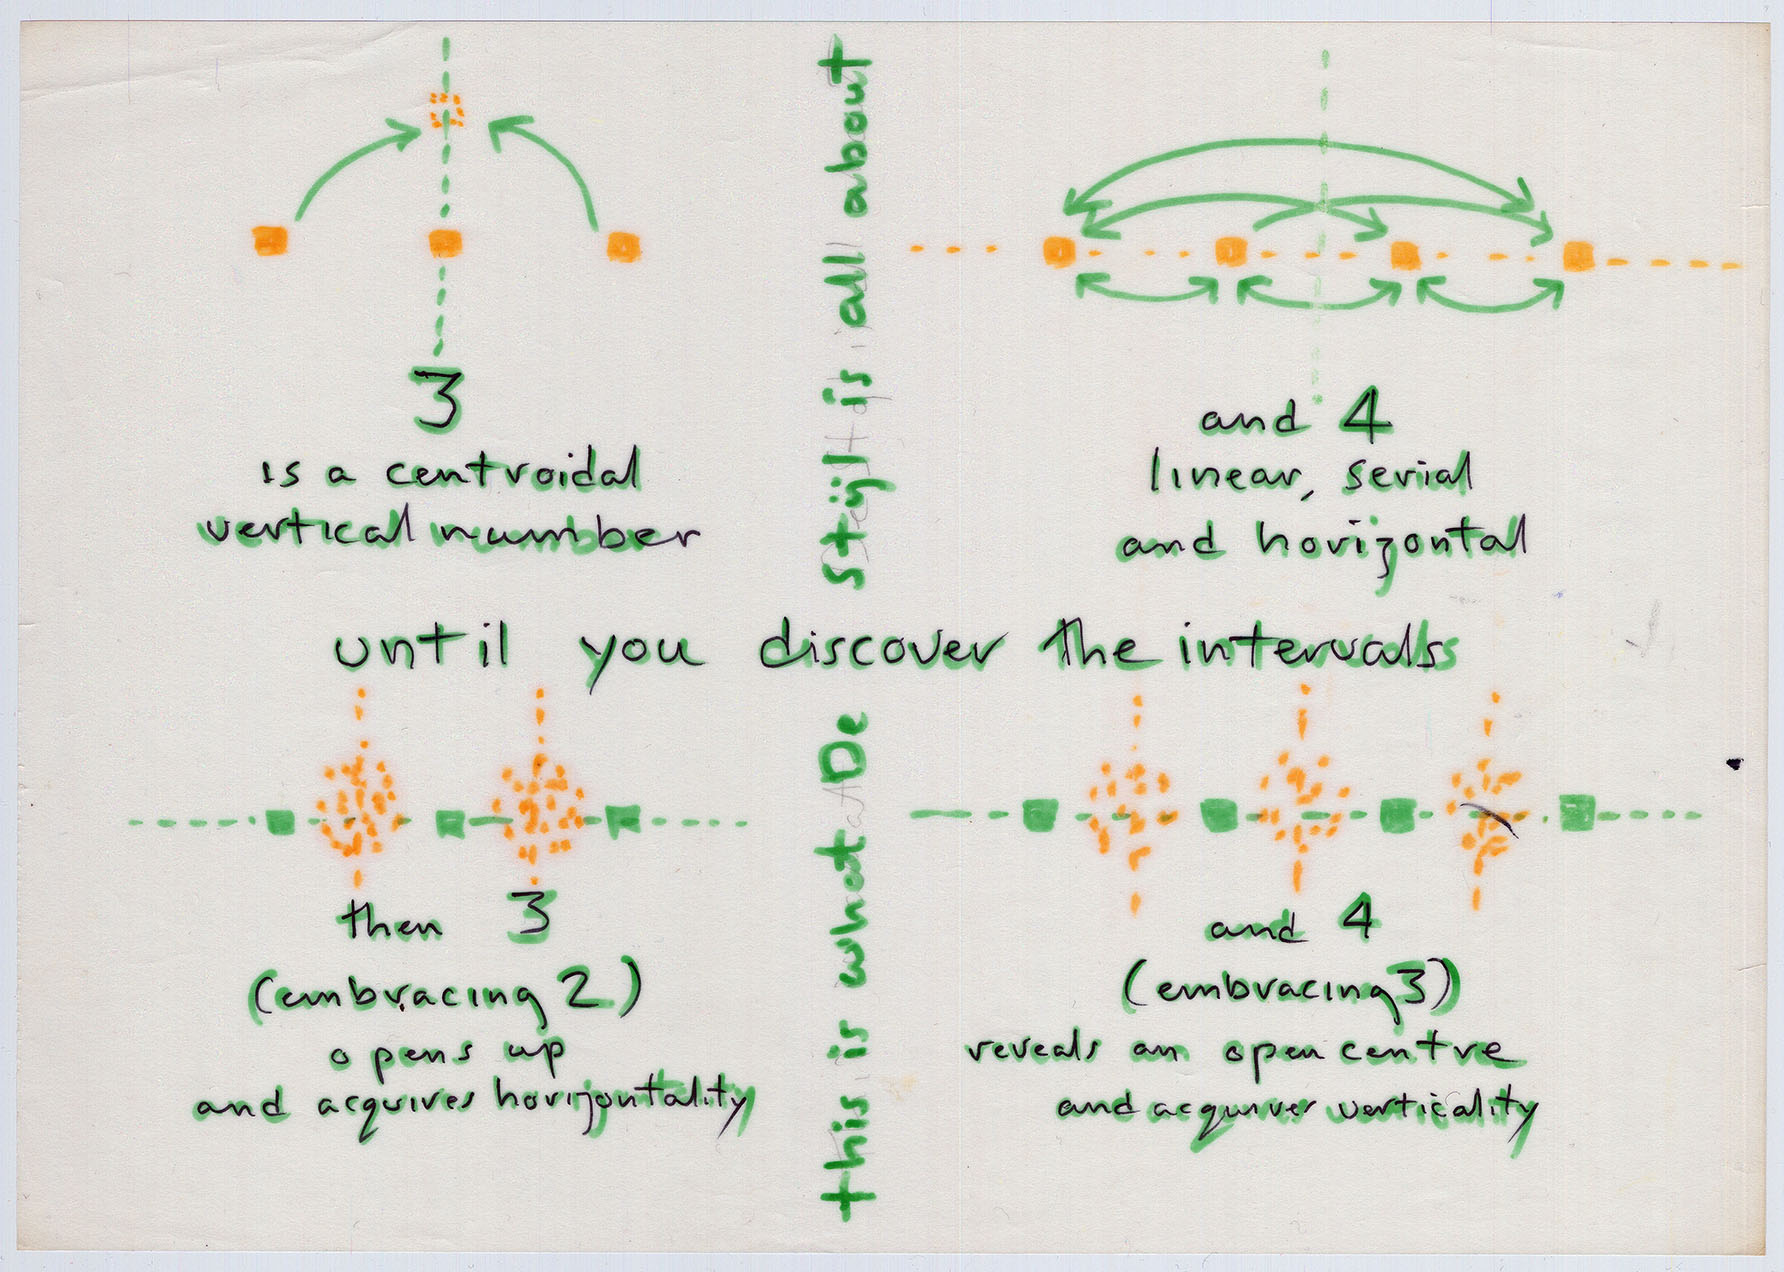 3
is a centroidal
vertical number
and 4
linear, serial
and horizontal
until you discover the intervals
then 3
(embracing 2)
opens up
and acquires horizontality
and 4
(embracing 3)
reveals an open centre
and acquires verticality
this is what De Stijl is all about